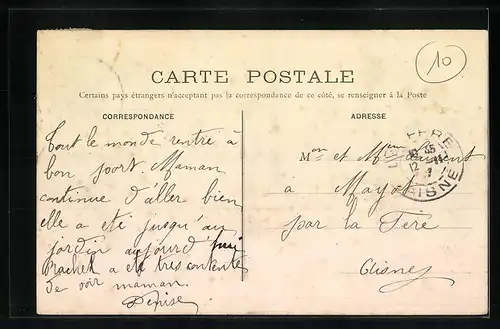 10
CARTE POSTALE
Certains pays étrangers n'acceptant pas la correspondance de ce côté, se renseigner à la Poste
CORRESPONDANCE
Tout le monde rentre à
bon port. Maman
continue d'aller bien
elle a eté jusqu'au
jardin aujourd'hui
Rachel a été tres contente
de voir maman.
Denise
ADRESSE
Mon et Mme
à Mayot
par la Fère
Aisne
FERE
AISNE